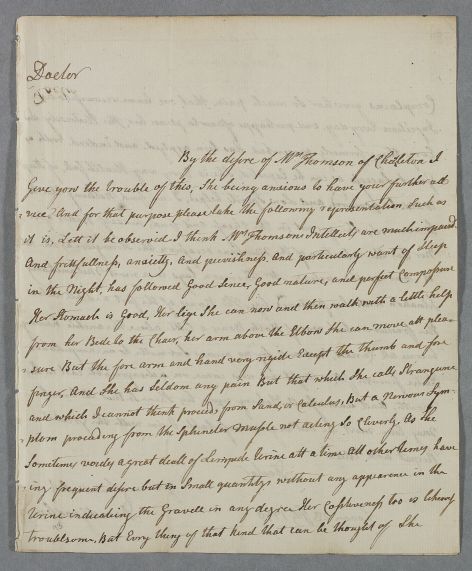 Doctor
By the desire of Mrs Thomson of Charleton I
Give you the trouble of this, She being anxious to have your further ad
=vice And for that purpose please take the following representation Such as
it is, Lett it be observed I think Mrs Thomsons Intellects are much impaird
And fretfullness, anxiety, and peevishness. And particularly want of Sleep
in the Night, has followed Good Sence, Good nature, and perfect Composure
Her Stomach is Good, Her legs She can now and then walk with a little help
from her Bede to the Chair, her arm above the Elbow She can move att plea=
=sure But the fore arm and hand very rigide Except the thumb and fore
finger, And She has Seldom any pain But that which She calls Strangurie
and which I cannot think proceeds from Sand, or Calculus, But a Nervous Sym=
=ptom proceeding from the Sphincter Musple not acting So Cleverly. As She
Sometimes voides a great deall of Limpide Urine att a time All other times have
=ing frequent desire but in Small quantitys without any appearence in the
Urine indicateing the Gravell in any degree Her Costiveness too is
troublsome, But Evry thing of that kind that can be thought of She